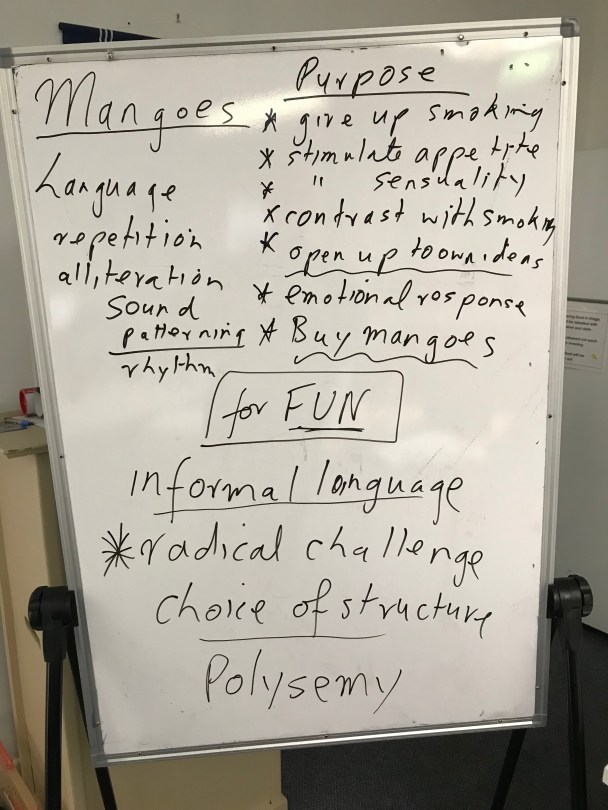 Mangoes
Language
repetition
alliteration
sound
patterning
rhythm
Purpose
* give up smoking
* stimulate appetite
* " sensuality
* contrast with smoking
* open up to own ideas
* emotional response
* Buy mangoes
for FUN
informal language
* radical challenge
choice of structure
Polysemy